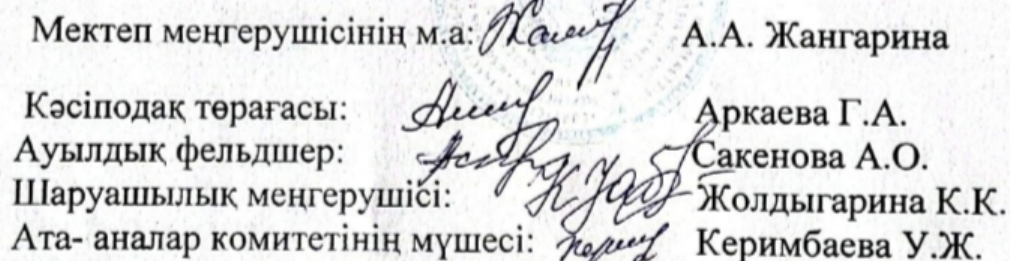 Мектеп меңгерушісінің м.а: А.А. Жангарина
Кәсіподақ төрағасы: Аркаева Г.А.
Ауылдық фельдшер: Сакенова А.О.
Шаруашылық меңгерушісі: Жолдыгарина К.К.
Ата- аналар комитетінің мүшесі: Керимбаева У.Ж.